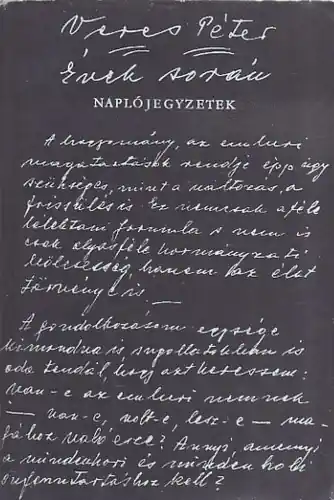 Veres Péter
Évek során
NAPLÓJEGYZETEK
A hagyomány, az emberi
magatartások rendje épp úgy
szükséges, mint a változás, a
frissülés is. Ez nemcsak afféle
lélektani formula s nem is
csak olyasféle kormányzati
bölcsesség, hanem az élet
törvénye is.
A gondolkozásom egysége
kimondva is, sugallatokban is
oda tendál, hogy azt keressem:
van-e az emberi nemnek
— van-e, volt-e, lesz-e — ma-
gához való esze? Annyi, amennyi
a mindenkori és minden holi
önfenntartáshoz kell?